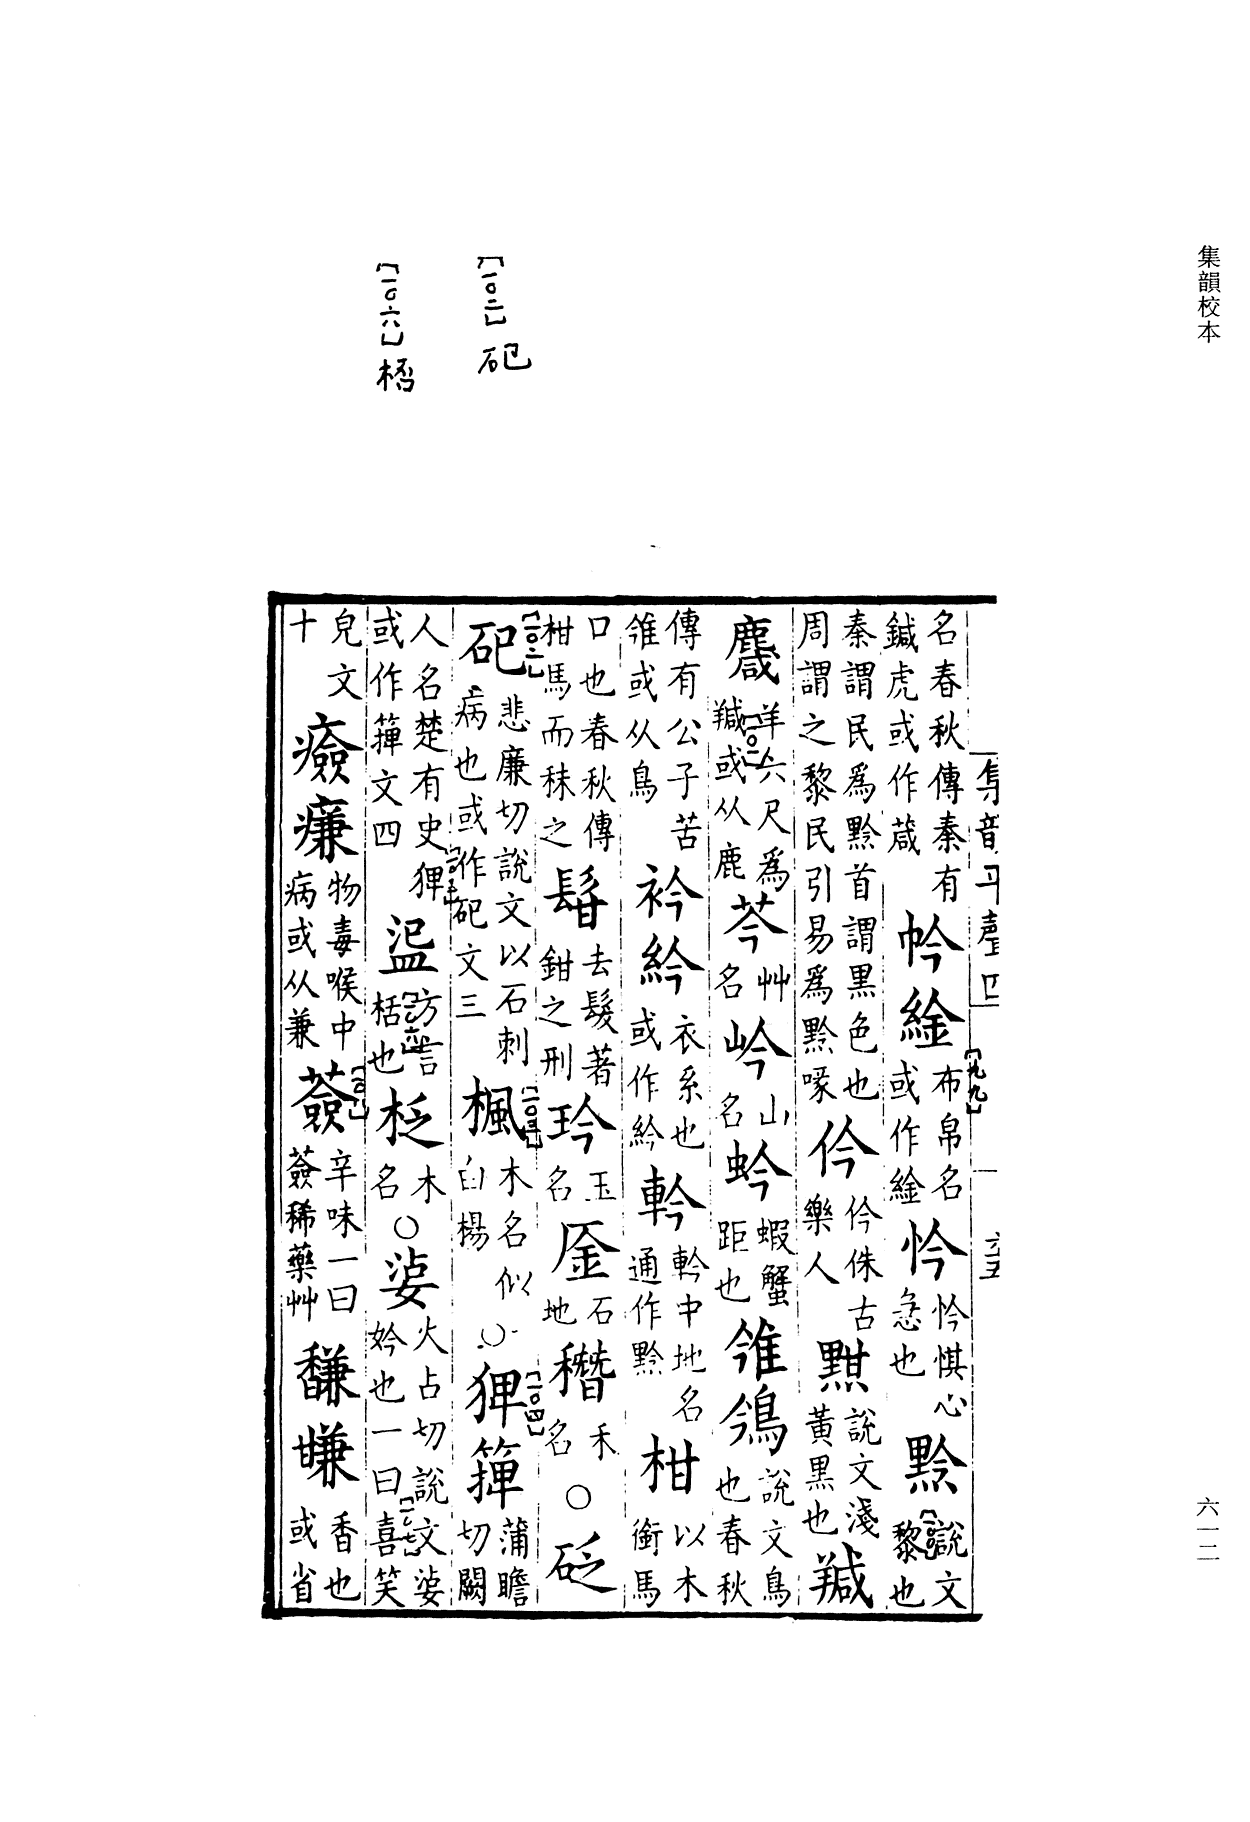 集韻校本
六一二
[一〇二]砨
[一〇六]㮄
集韻平聲四
名春秋傳秦有鍼虎或作葴 㡋䋮[九九]布帛名或作䋮 忴忴惎心急也 黔[一〇〇]說文黎也
秦謂民爲黔首謂黑色也周謂之黎民引易爲黔喙 伶伶侏古樂人 黚說文淺黃黑也 羬
麙羊六尺爲羬[一〇一]或从鹿 芩艸名 岭山名 蚙蝦蟹距也 雂鳹說文鳥也春秋
傳有公子苦雂或从鳥 衿紟衣系也或作紟 軡軡中地名通作黔 柑以木銜馬
口也春秋傳柑馬而秣之 髻去髮著鉗之刑 玪玉名 𠩖石地 䅾禾名 ○砭
砨[一〇二]悲廉切說文以石刺病也或作砨文三 楓[一〇三]木名似白楊 ○㹆[一〇四]䈂蒲瞻切闕
人名楚有史㹆[一〇五]或作䈂文四 㴀方言[一〇六]桮也 柉木名 ○㛼火占切說文㛼妗也一曰[一〇七]喜笑
皃文十 㿌㾾物毒喉中病或从兼 薟[一〇八]辛味一曰薟稀藥艸 馦㽐香也或省